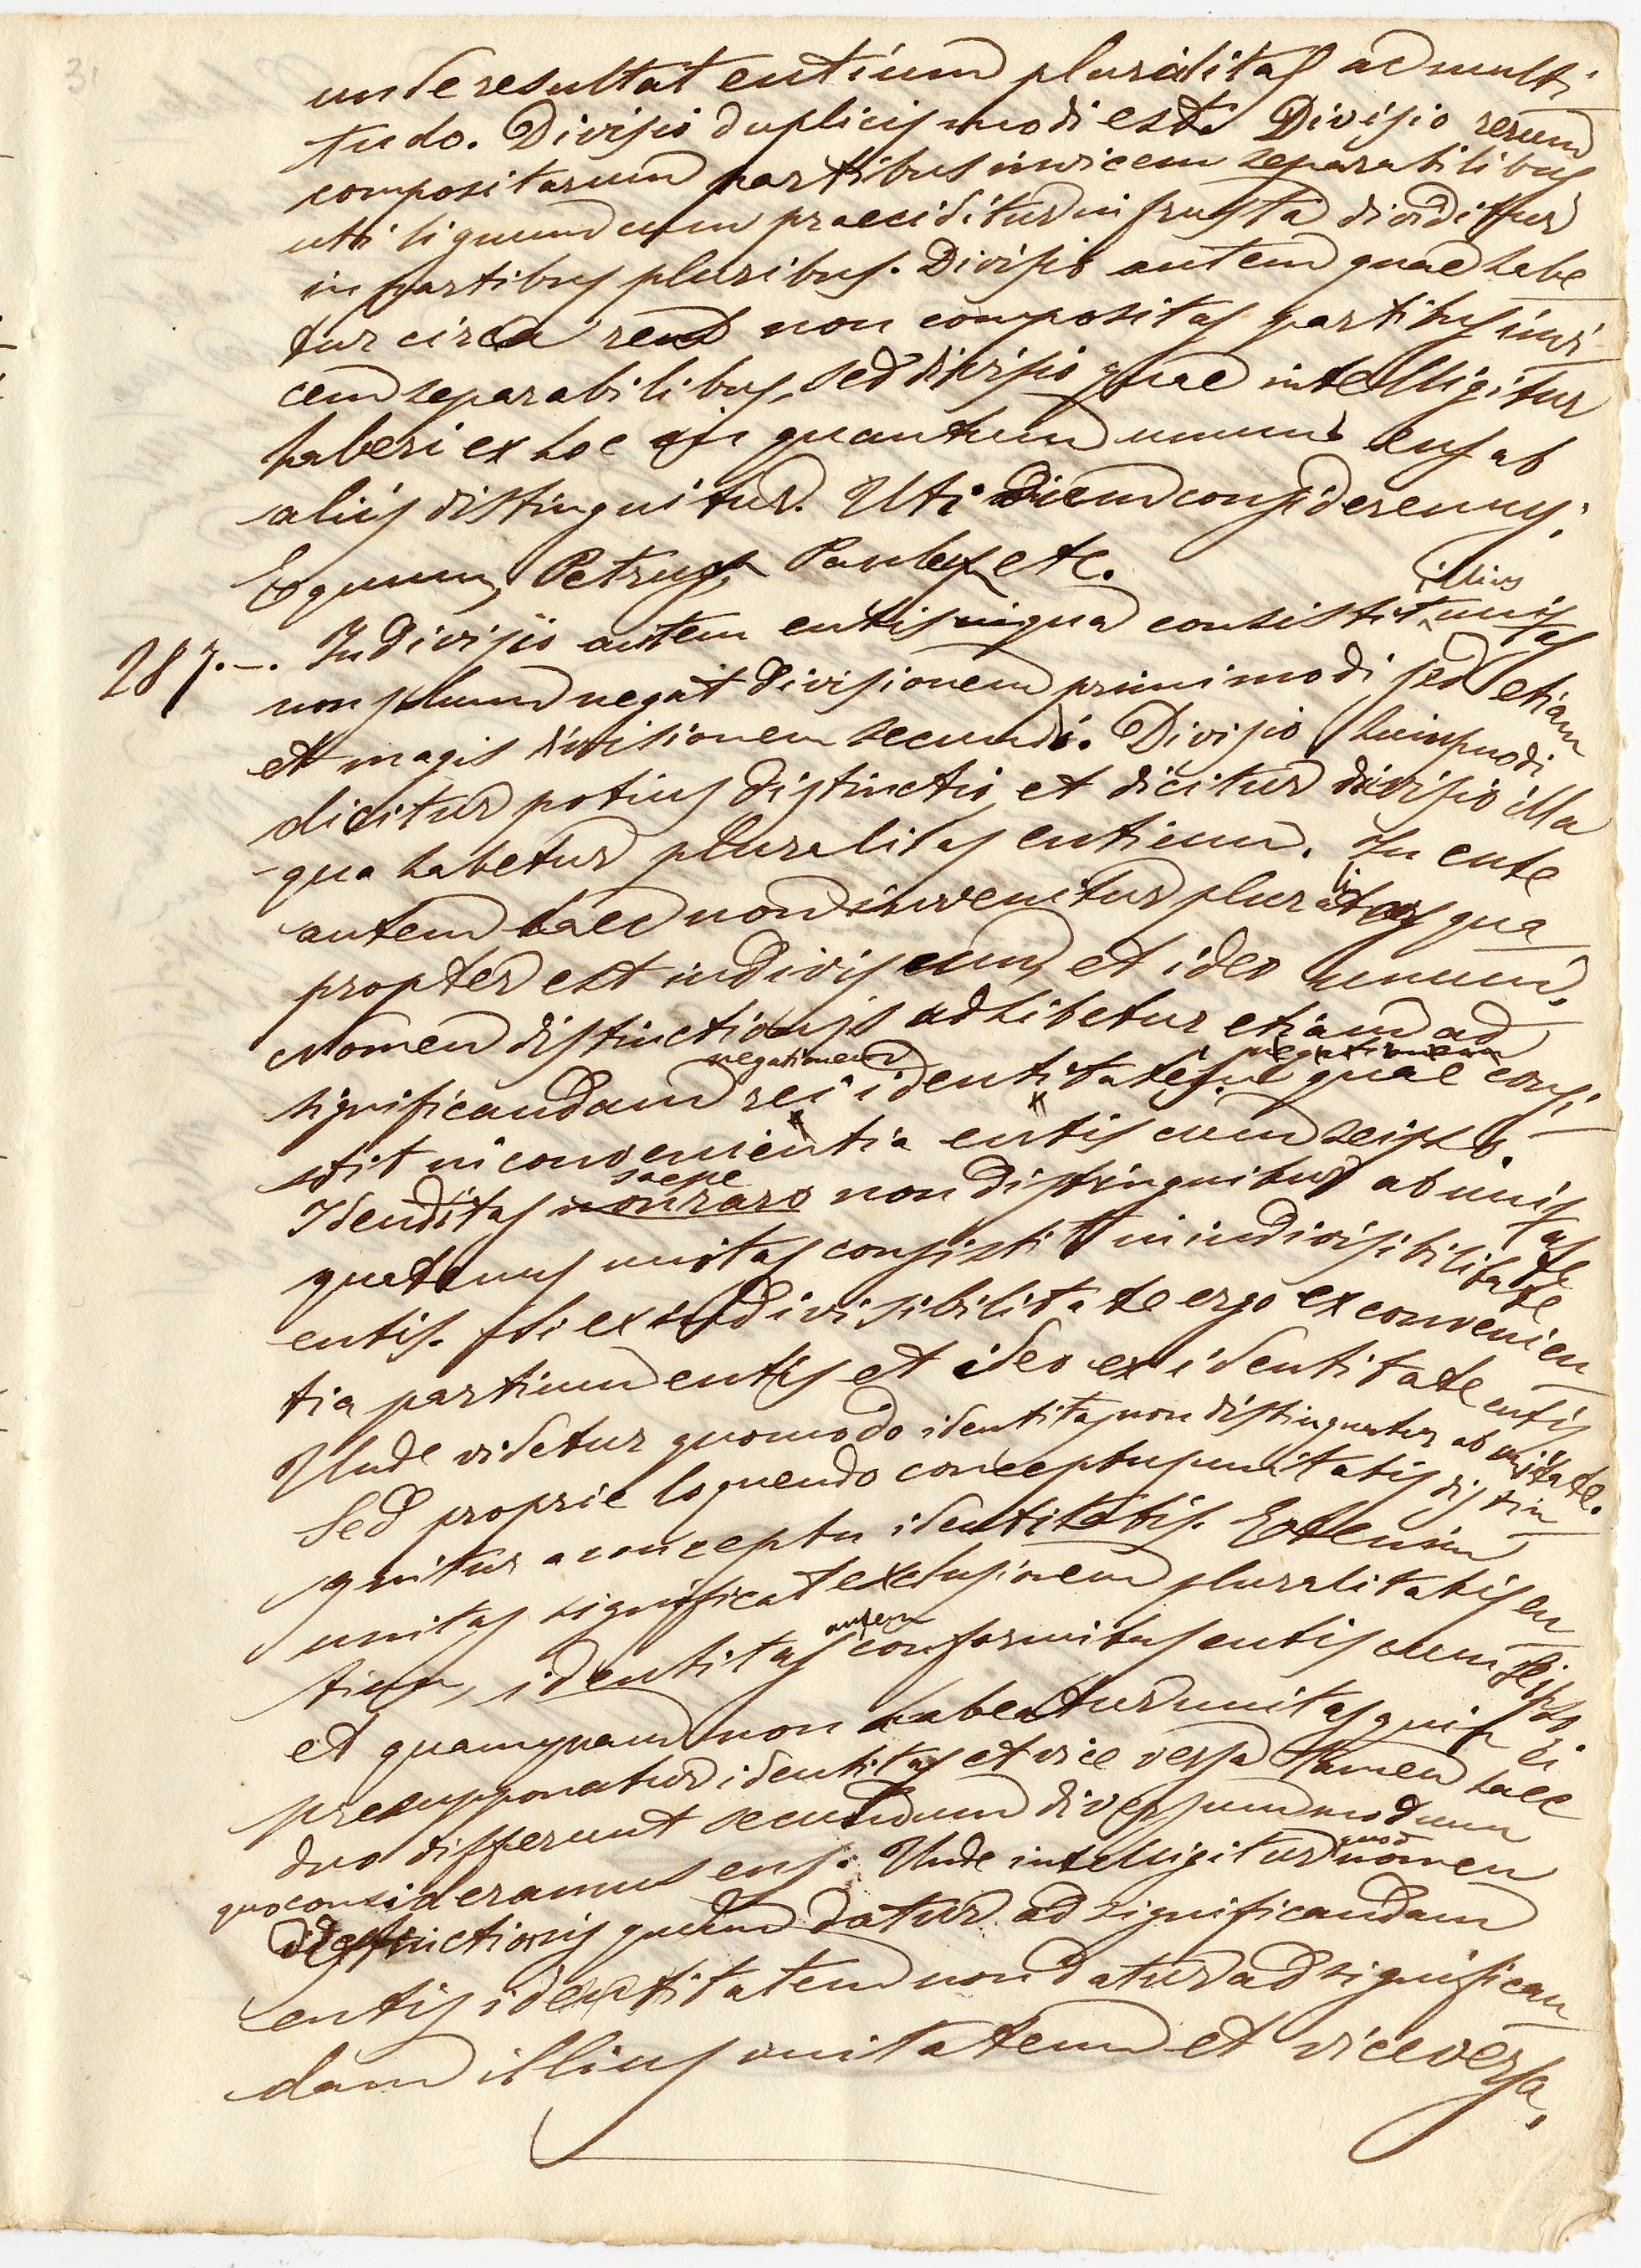 31
unde resultat entium pluralitas ac multi
tudo. Divisio duplicis modi est. Divisio rerum
compositarum partibus invicem separabilibus
uti lignum cum praeciditur in frusta dividitur
in partibus pluribus. Divisio autem quae habe
tur circa rem non compositas partibus invi
cem separabilibus, sed divisio quae intelligitur
haberi ex hoc in quantum unum ens ab
aliis distinguitur. Uti Diem consideremus;
Equum, Petrus, Paulus etc.
287.-. Indivisio autem entis in qua consistit illius unitas
non solum negat divisionem primi modi sed etiam
et magis divisionem secundi. Divisio huiusmodi
dicitur potius distinctio, et dicitur divisio illa
qua habetur pluralitas entium. In ente
autem haec non invenitur pluralitas qua
propter est indivisum, et ideo unum.
Nomen distinctionis adhibetur etiam ad
significandam negationem rei identitatis quae consi
stit in convenientia entis cum seipso.
Idenditas saepe non distinguitur ab unitate
quatenus unitas consistit in indivisibilitate
entis. Si ex indivisibilitate ergo ex convenien
tia partium entis et ideo ex identitate entis
Unde videtur quomodo identitas non distinguatur ab unitate.
Sed proprie loquendo conceptus unitatis distin
guitur a conceptu identitatis. Etenim
unitas significat exclusionem pluralitatis en
tium, identitas autem conformitas entis cum se ipso
et quamquam non habeatur unitas quin ei
presupponatur identitas et vice versa tamen haec
duo differunt secundum diversum modum
quo consideramus ens. Unde intelligitur quod nomen
distinctionis quum datur ad significandam
entis identitatem non datur ad significan
dam illius unitatem et viceversa.